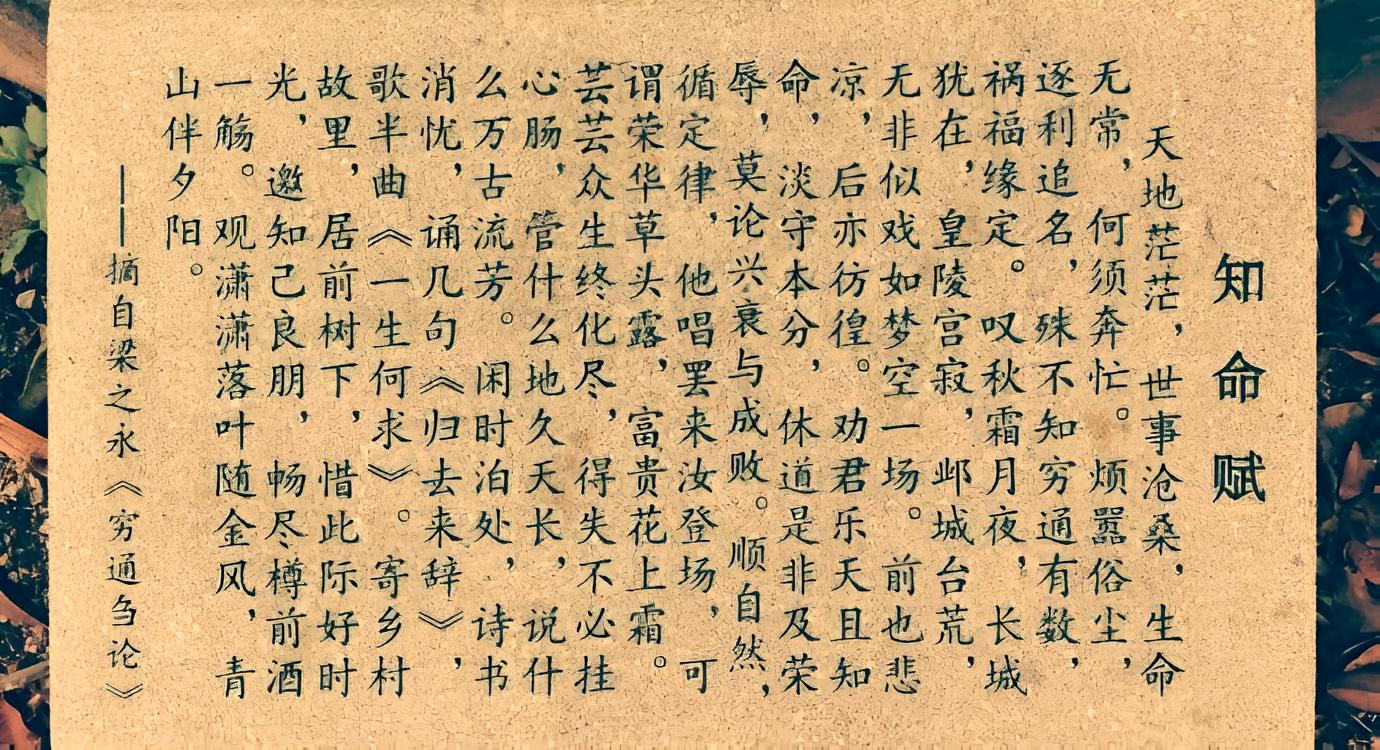 知命赋
天地茫茫，世事沧桑，生命
无常，何须奔忙。烦嚣俗尘，
逐利追名，殊不知穷通有数，
祸福缘定。叹秋霜月夜，长城
犹在，皇陵宫寂，邺城台荒，
无非似戏如梦空一场。前也悲
凉，后亦彷徨。劝君乐天且知
命，淡守本分，休道是非及荣
辱，莫论兴衰与成败。顺自然，
循定律，他唱罢来汝登场，可
谓荣华草头露，富贵花上霜。
芸芸众生终化尽，得失不必挂
心肠，管什么地久天长，说什
么万古流芳。闲时泊处，诗书
消忧，诵几句《归去来辞》，
歌半曲《一生何求》。寄乡村
故里，居前树下，惜此际好时
光，邀知己良朋，畅尽樽前酒
一觞。观潇潇落叶随金风，青
山伴夕阳。
——摘自梁之永《穷通刍论》